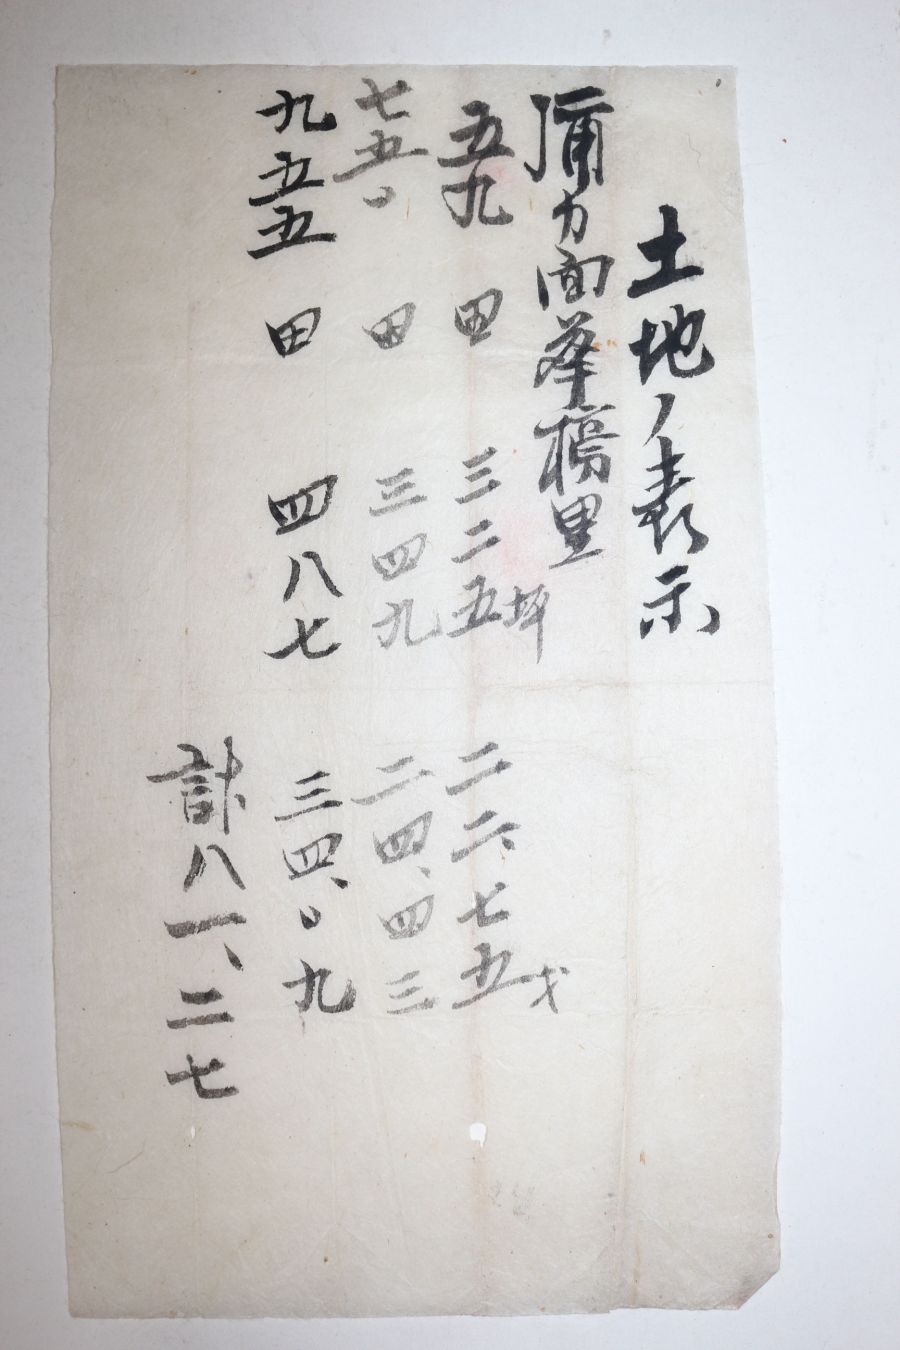 土地ノ表示
彌力面華榜里
五九 田 三二五坪 二二、七五
七五〇 田 三四九 二四、四三
九五五 田 四八七 三四、〇九
計八一、二七